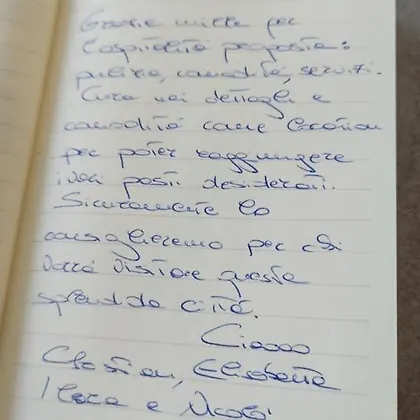 Grazie mille per
l'ospitalità proposta:
pulizia, comodità, servizi.
Cura nei dettagli e
comodità come location
per poter raggiungere
i vari posti desiderati.
Sicuramente lo
consiglieremo per chi
vorrà visitare questa
splendida città.
Ciaooo
Christian, Elisabetta
e Nicolò